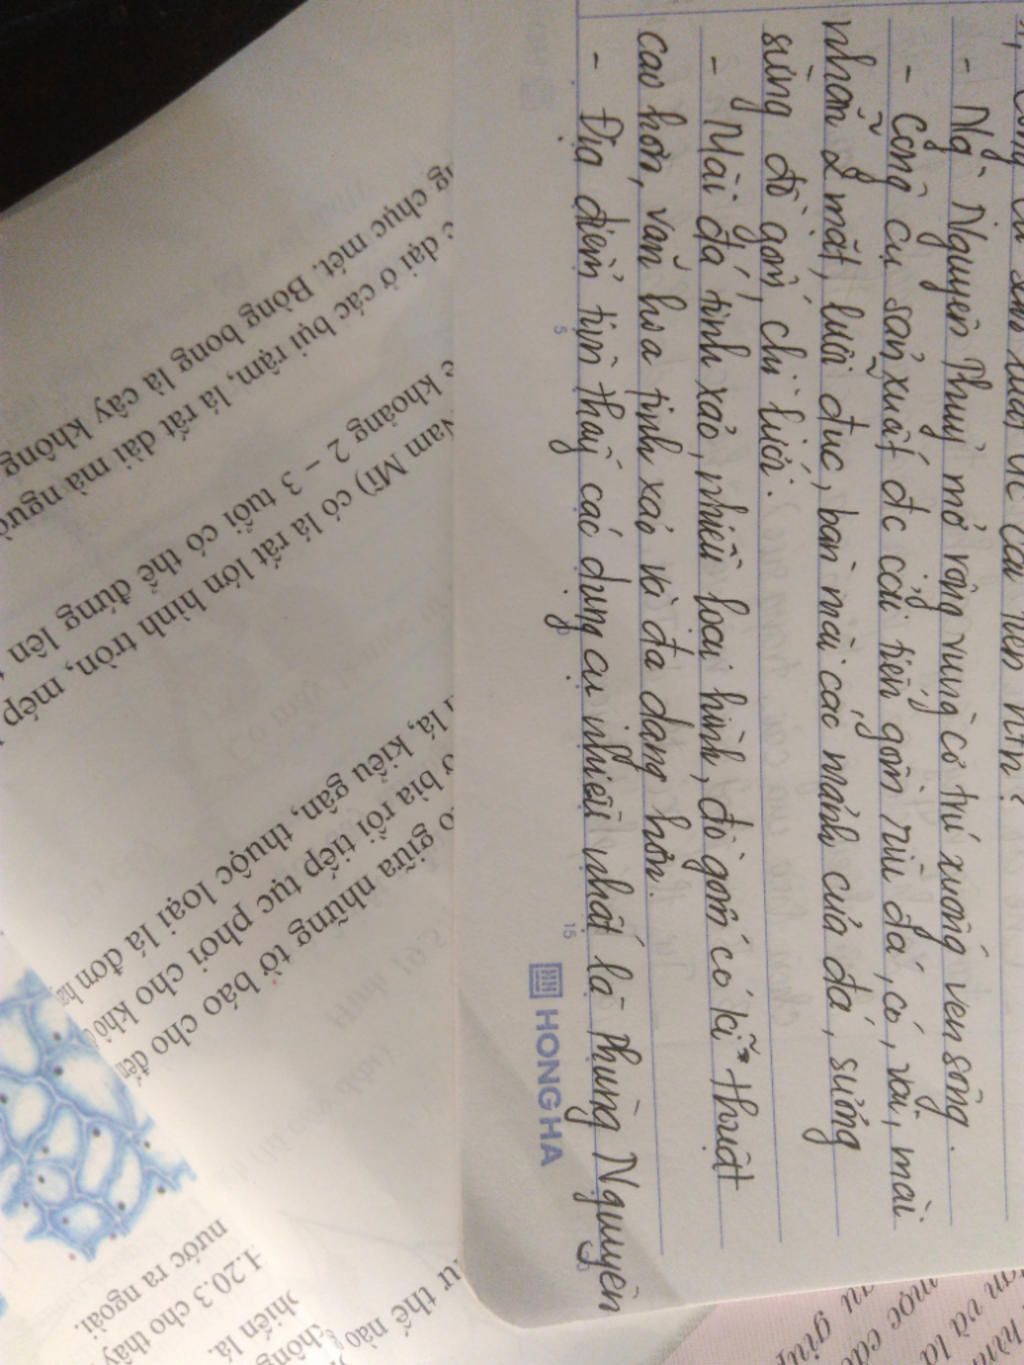 cải tiến ntn?
- Ng. Nguyên Thuỷ mở rộng vùng cư trú xuống ven sông.
- Công cụ sản xuất đc cải tiến gồm rìu đá, có, vai, mài
nhẵn 2 mặt, lưỡi đục, bàn mài các mảnh cưa đá, xương
sừng đồ gốm, chì lưới.
- Mài đá tinh xảo, nhiều loại hình, đồ gốm có kĩ thuật
cao hơn, văn hoa tinh xảo và đa dạng hơn.
- Địa điểm tìm thấy các dụng cụ nhiều nhất là Phùng Nguyên
5
15
HONG HA
chục mét. Bòng bong là cây không
dại ở các bụi rậm, lá rất dài mà người
khoảng 2 - 3 tuổi có thể đứng lên
Nam Mĩ) có lá rất lớn hình tròn, mép
lá, kiểu gân, thuộc loại lá đơn
bìa rồi tiếp tục phơi cho khô
giữa những tờ báo cho đến
nước ra ngoài.
H.20.3 cho thấy
phiến lá.
không
thế nào